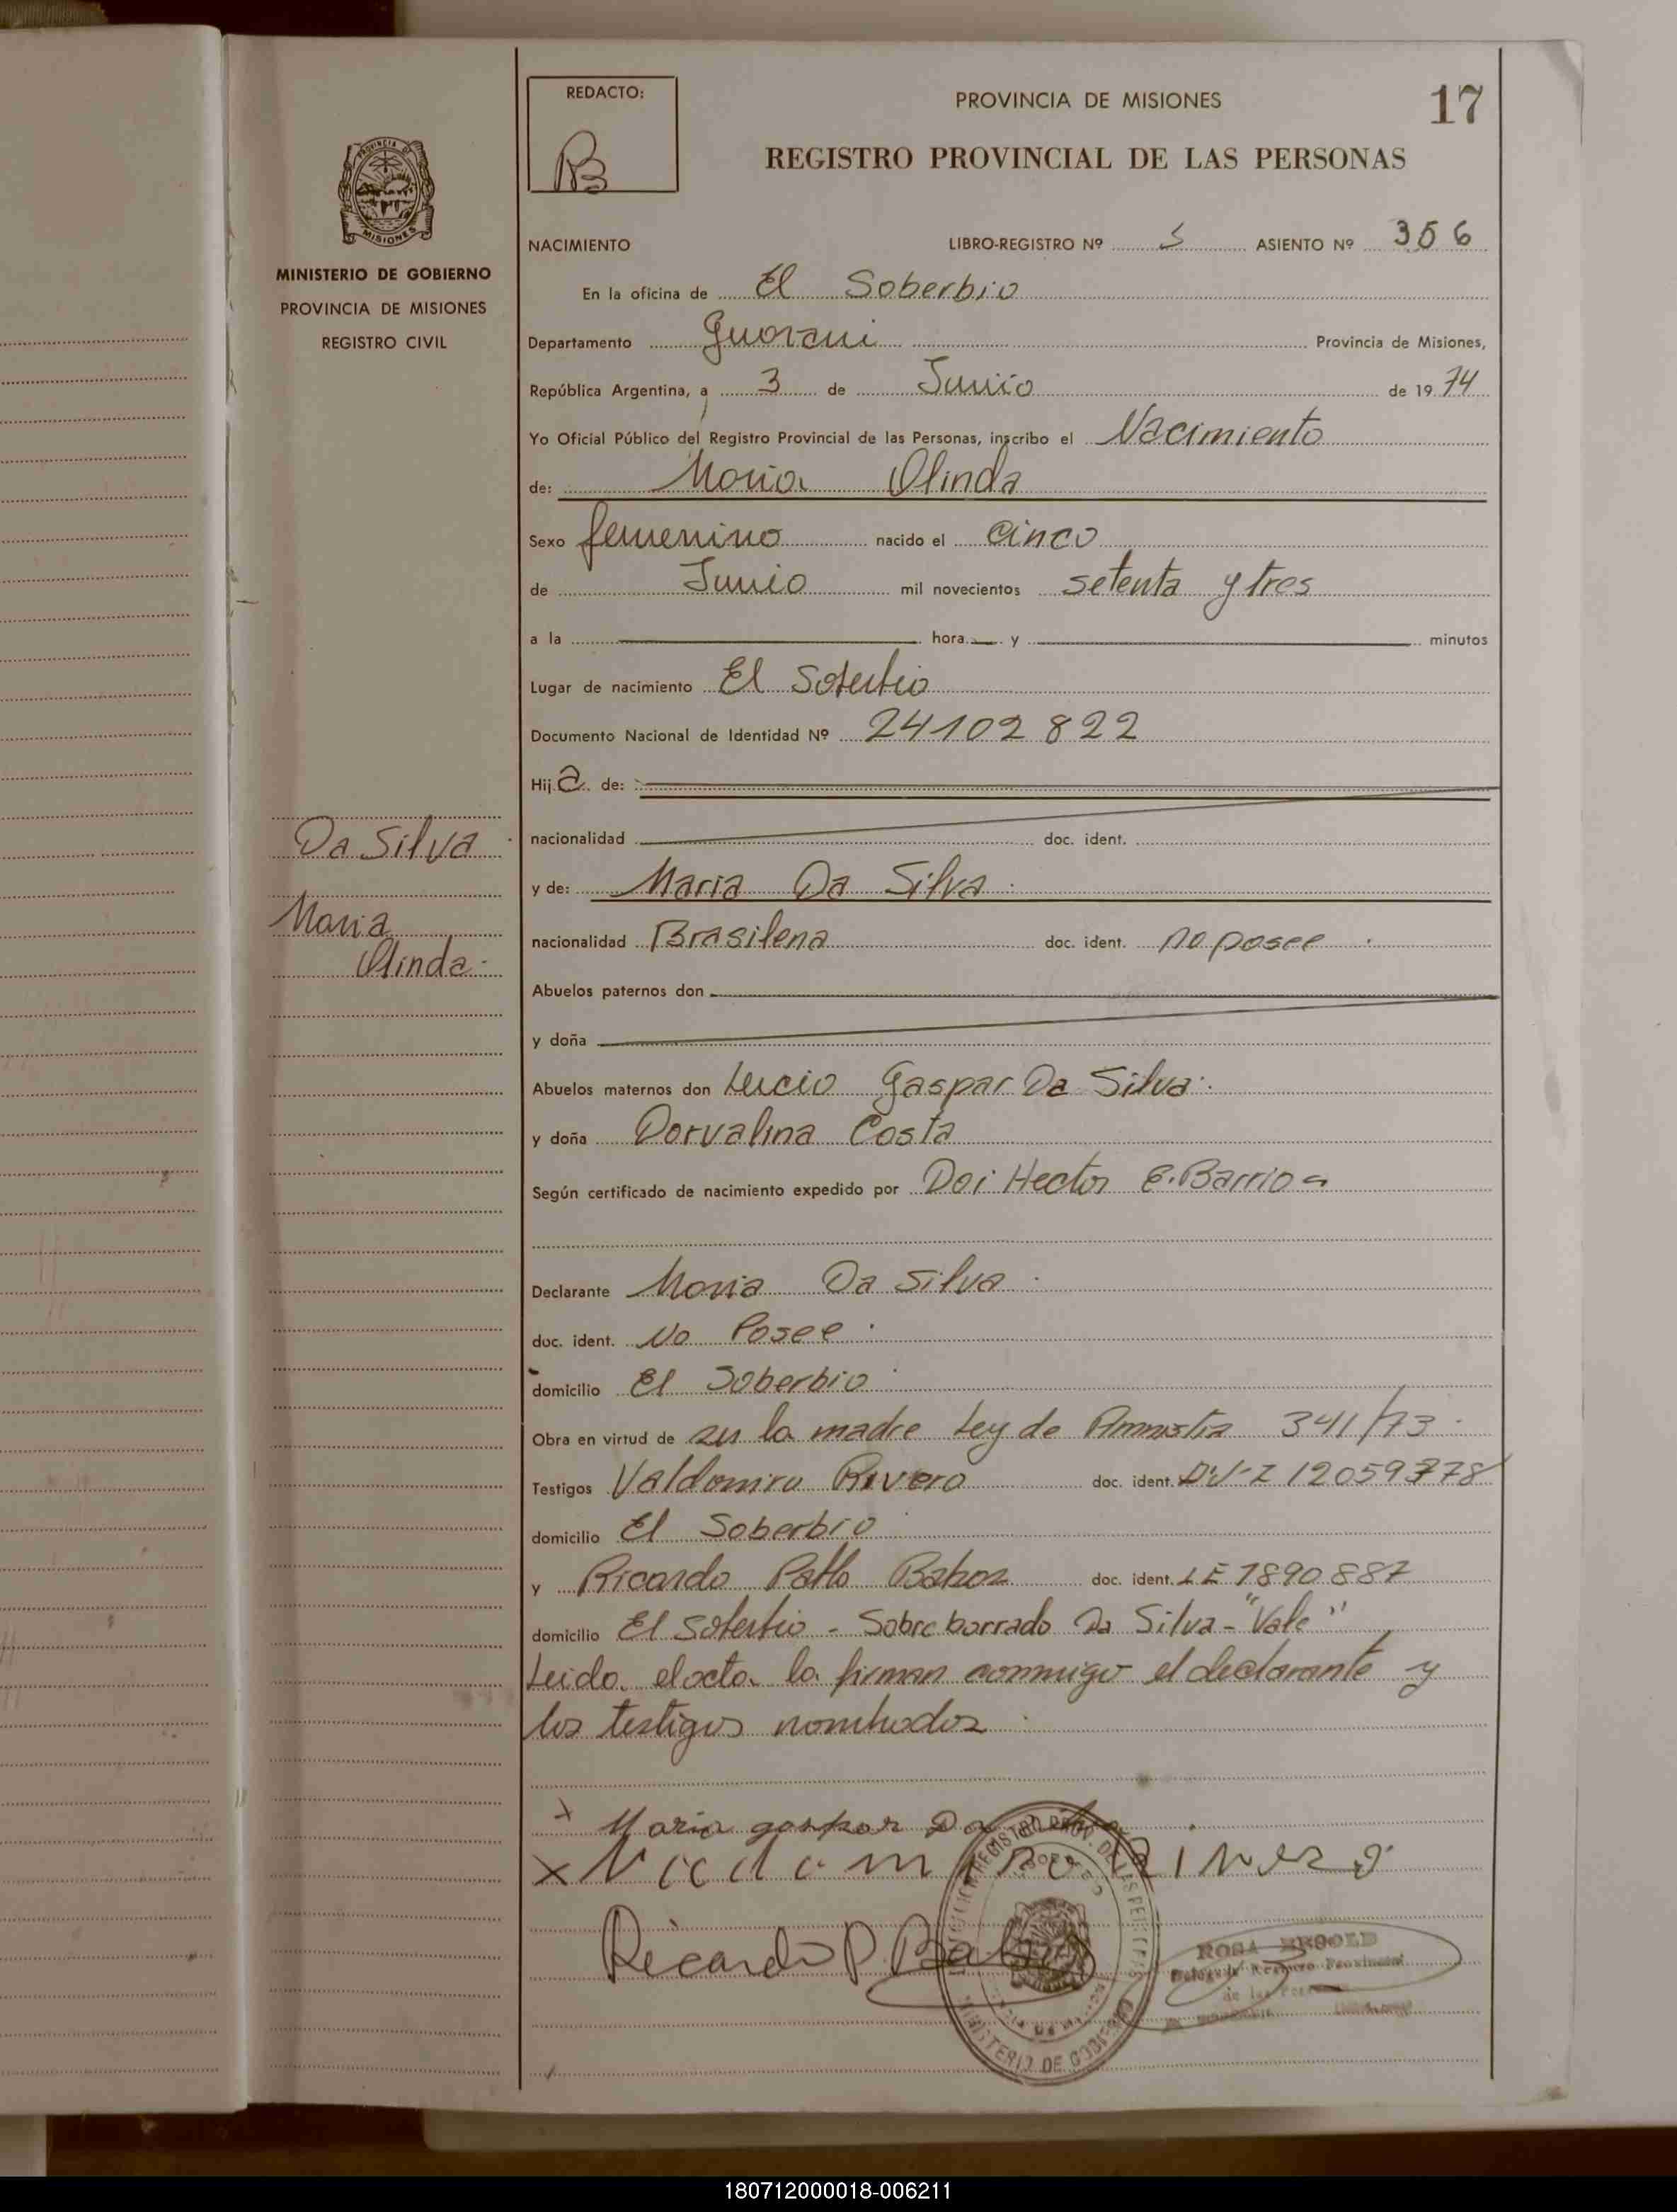 REDACTO:
PROVINCIA DE MISIONES
17
REGISTRO PROVINCIAL DE LAS PERSONAS
PROVINCIA DE
MISIONES
MINISTERIO DE GOBIERNO
PROVINCIA DE MISIONES
REGISTRO CIVIL
NACIMIENTO LIBRO-REGISTRO Nº 5 ASIENTO Nº 356
En la oficina de El Soberbio
Departamento Guarani Provincia de Misiones,
República Argentina, a 3 de Junio de 1974
Yo Oficial Público del Registro Provincial de las Personas, inscribo el Nacimiento
de: Maria Olinda
Sexo femenino nacido el cinco
de Junio mil novecientos setenta y tres
a la hora y minutos
Lugar de nacimiento El Soberbio
Documento Nacional de Identidad Nº 24102822
Hija de:
nacionalidad doc. ident.
Da Silva
y de: Maria Da Silva
Maria
Olinda
nacionalidad Brasilena doc. ident. no posee
Abuelos paternos don
y doña
Abuelos maternos don Lucio Gaspar Da Silva
y doña Dorvalina Costa
Según certificado de nacimiento expedido por Hector E. Barrios
Declarante Maria Da Silva
doc. ident. No Posee
domicilio El Soberbio
Obra en virtud de la madre Ley de Amnistia 341/73
Testigos Valdomiro Rivero doc. ident. 12059778
domicilio El Soberbio
y Ricardo Pablo doc. ident. LE 7890887
domicilio El Soberbio - Sobre borrado Da Silva - "Vale"
Leido el acta la firman conmigo el declarante y
los testigos nombrados
x Maria gaspar Da
x
Ricardo P.
MINISTERIO DE GOBIERNO
ROSA
180712000018-006211